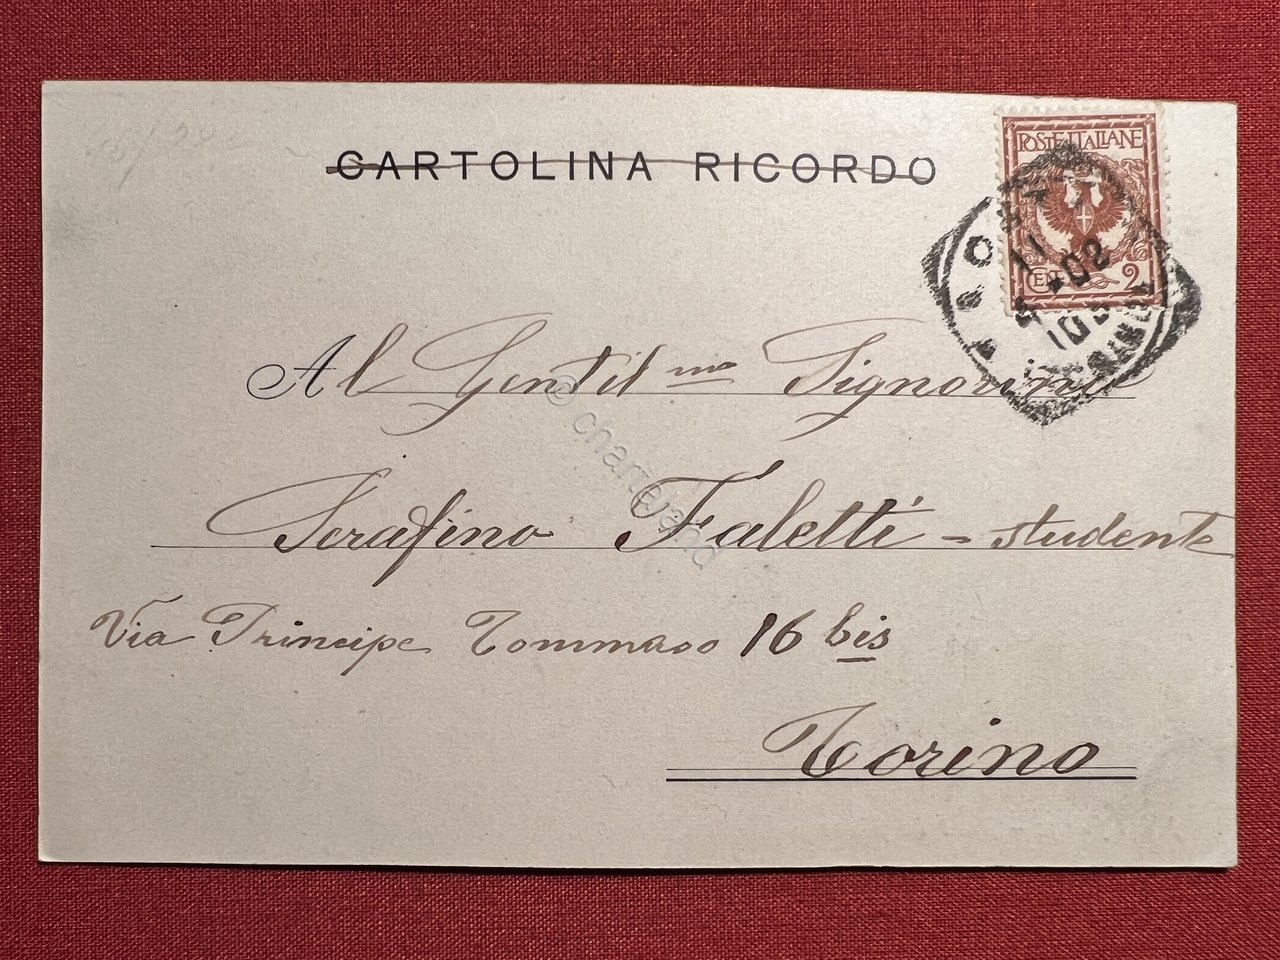 CARTOLINA RICORDO
POSTE ITALIANE
CENT. 2
11
02
Al Gentil mo Signorino
Serafino Faletti - studente
Via Principe Tommaso 16 bis
Torino
© charteland